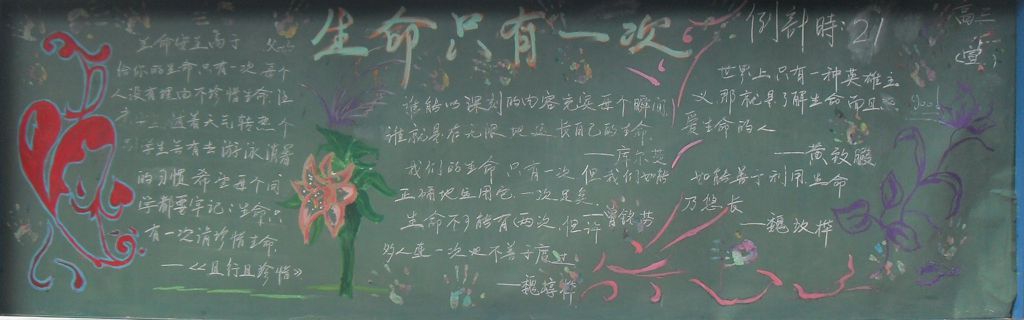 生命只有一次
倒計時:21
高三
生命安全高于
给你的生命只有一次每个
人没有理由不珍惜生命注
随着天气转热个
学生会有去游泳消暑
的习惯希望每个同
学都要牢记:生命只
有一次请珍惜生命
——《且行且珍惜》
谁能以深刻的内容充实每个瞬间
谁就是在无限地延长自己的生命
——库尔茨
我们的生命只有一次但我们如能
正确地运用它一次足矣
生命不可能有两次,但许
多人连一次也不善于度过
世界上只有一种英雄主
义那就是了解生命而且
爱生命的人
如能善于利用生命
乃悠长
good